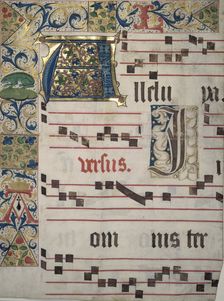 Allelu pa.
I
versus.
om nis ter